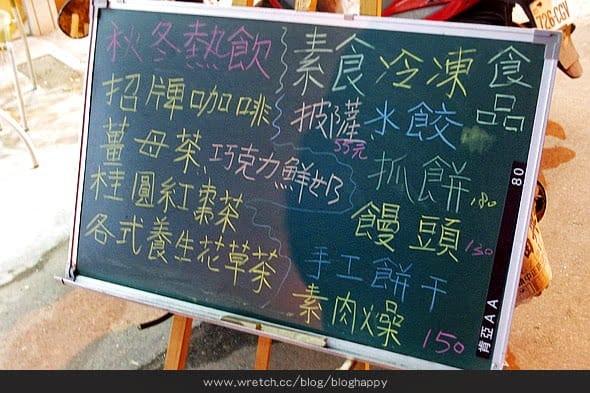 秋冬熱飲
招牌咖啡
薑母茶、巧克力鮮奶
桂圓紅棗茶
各式養生花草茶
素食冷凍食品
披薩、水餃
55元
抓餅
180
饅頭
130
手工餅干
素肉燥
150
80
肯亞AA
726·CGV
www.wretch.cc/blog/bloghappy